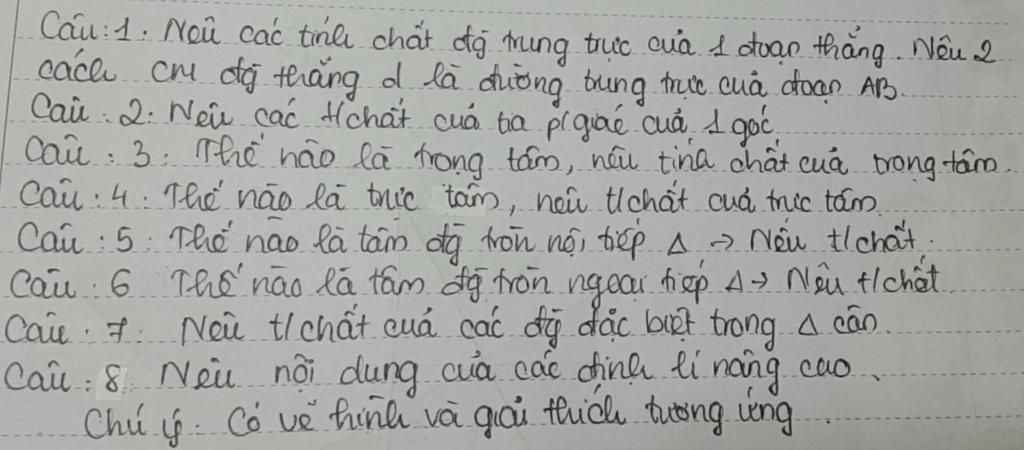 Câu: 1. Nêu các tính chất đg trung trực của 1 đoạn thẳng. Nêu 2
cách cm đg thẳng d là đường trung trực của đoạn AB.
Câu: 2. Nêu các t/chất của tia p/giác của 1 góc
Câu: 3: Thế nào là trọng tâm, nêu tính chất của trọng tâm.
Câu: 4: Thế nào là trực tâm, nêu t/chất của trực tâm.
Câu: 5: Thế nào là tâm đg tròn nội tiếp Δ → Nêu t/chất.
Câu: 6 Thế nào là tâm đg tròn ngoại tiếp Δ → Nêu t/chất
Câu: 7: Nêu t/chất của các đg đặc biệt trong Δ cân.
Câu: 8. Nêu nội dung của các định lí nâng cao.
Chú ý: Có vẽ hình và giải thích tương ứng.